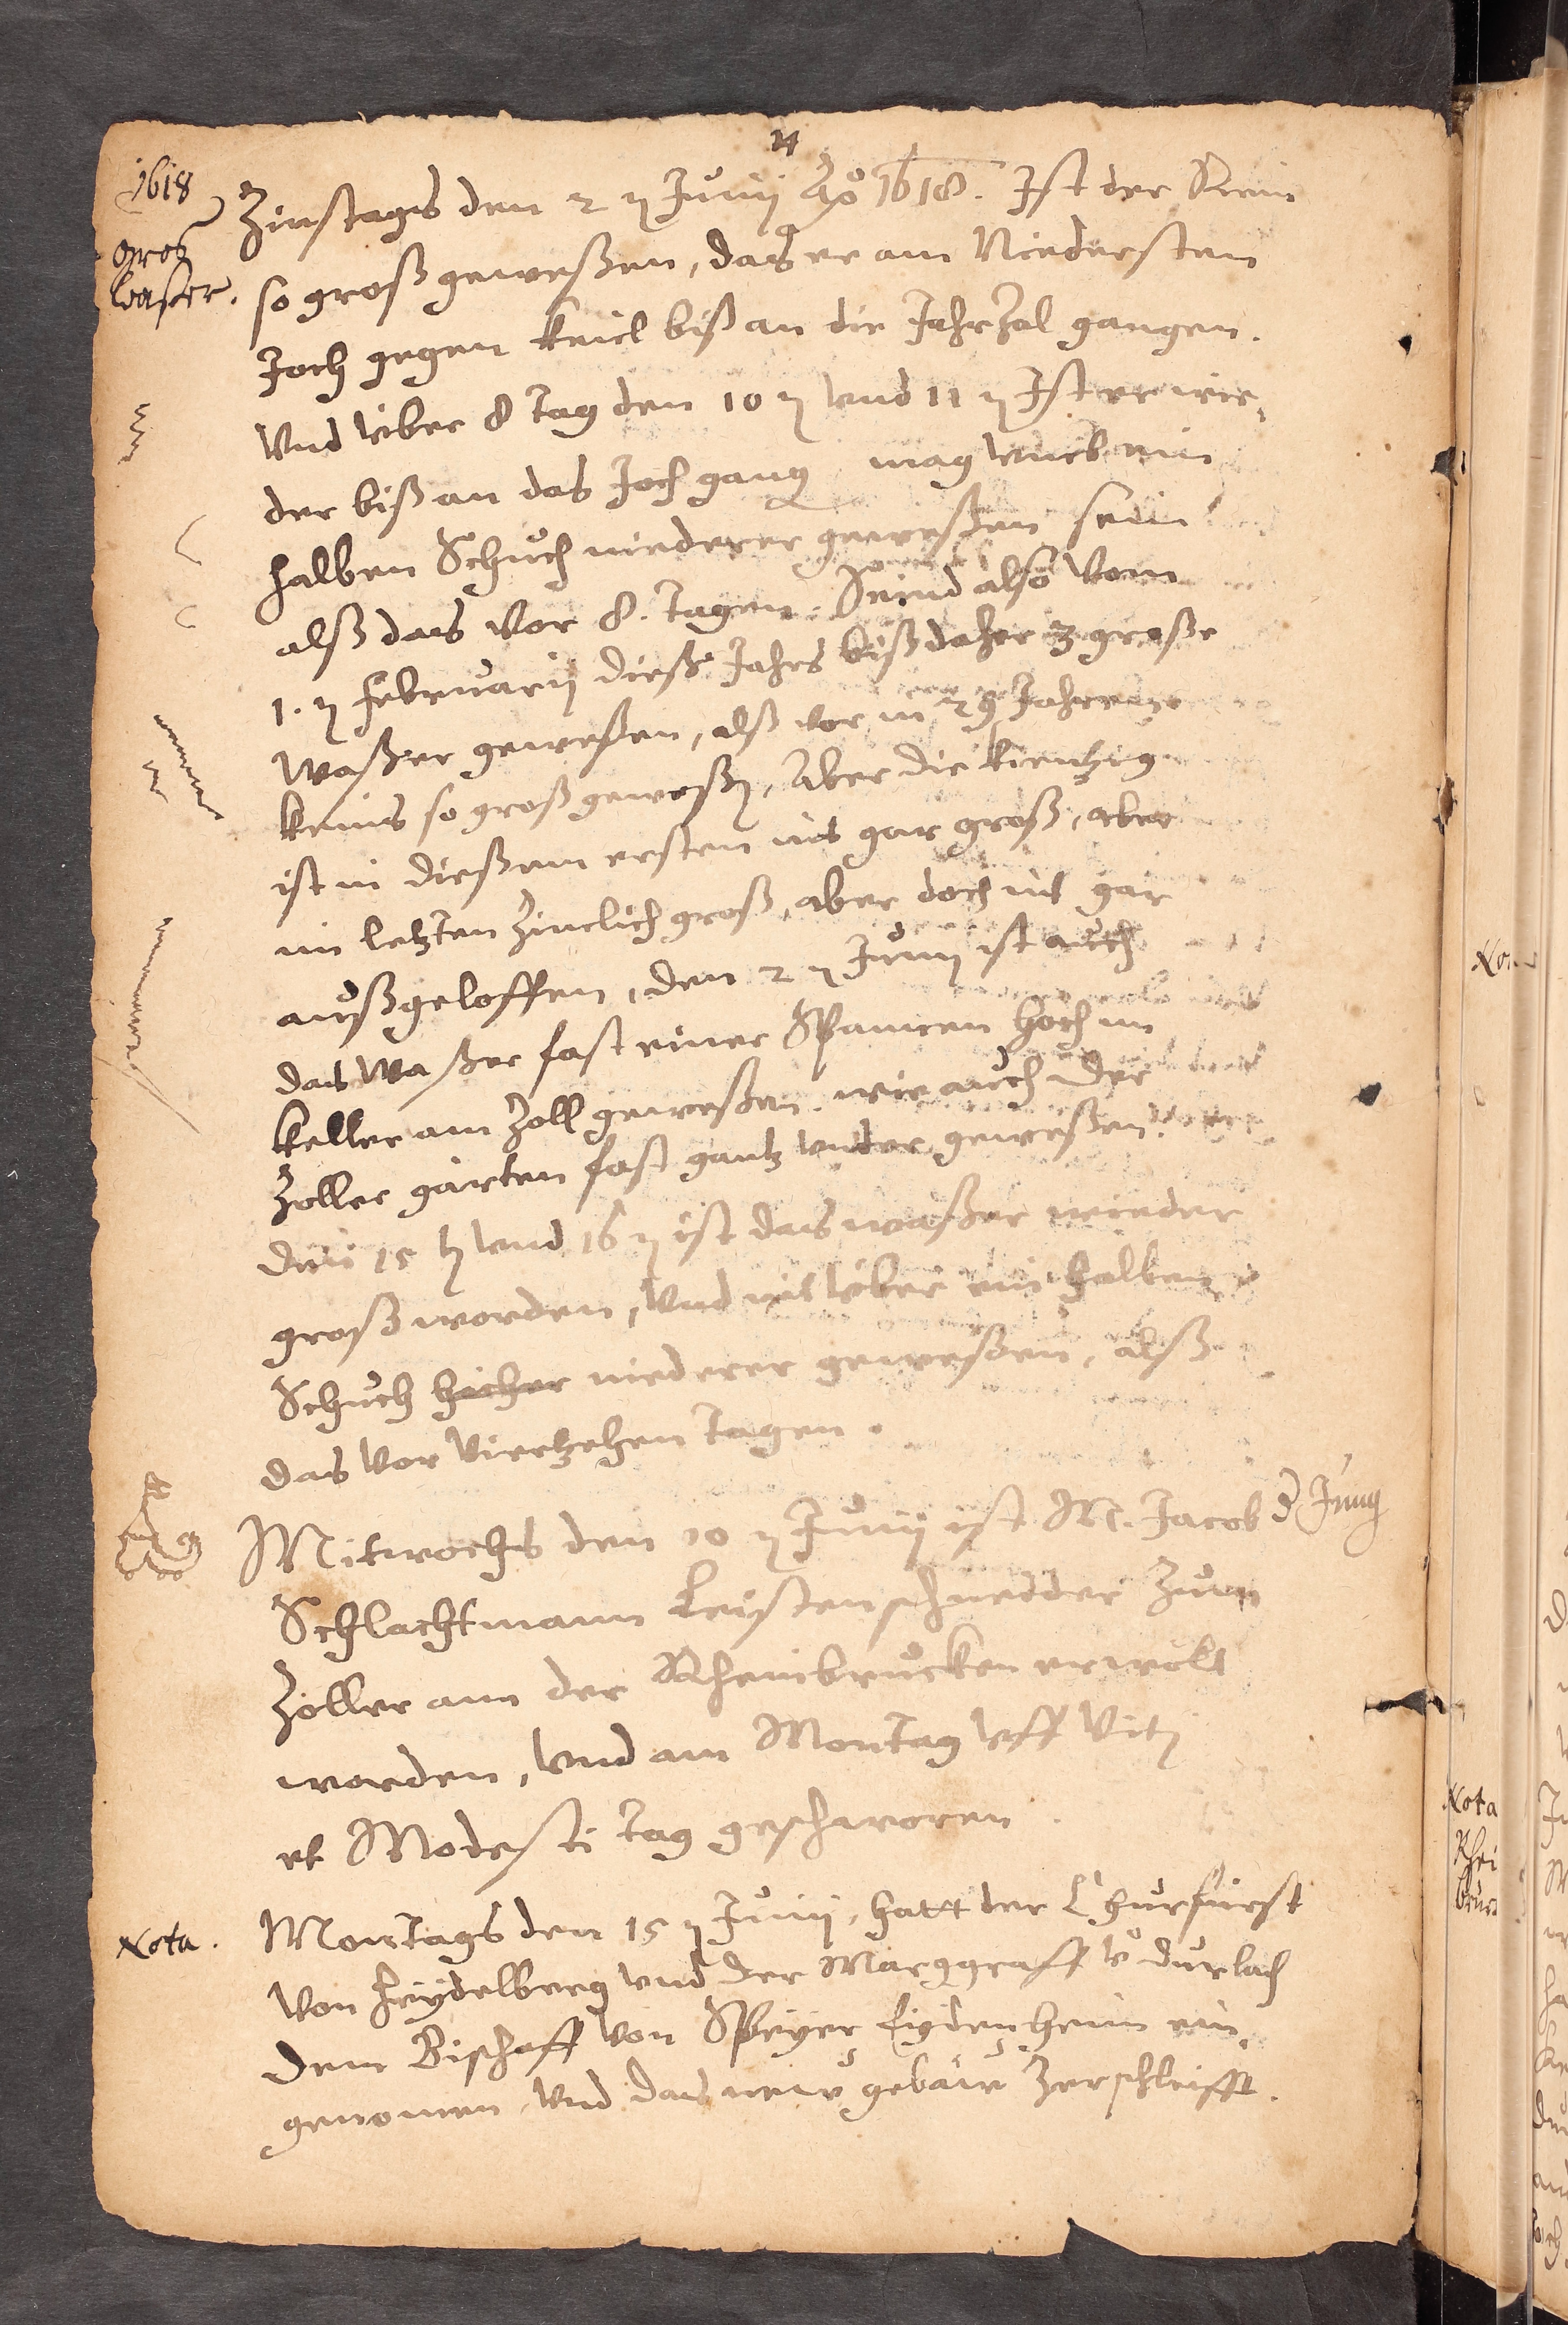 1618
Gros
waser.
Zinstags den 2 ten Junij Ao 1618. Ist der Rein
so groß geweßen, das er am Niedersten
Joch gegen Keiel biß an die JahrZal gangen.
Vnd vber 8 Tag den 10 ten vnd 11 ten Ist er wie,
der biß an das Joch gang mag vmb ein
halben Schuch niederer geweßen sein
alß das vor 8. Tagen. Seind also vom
1. ten Februarij dieß Jahrs bißdaher 3 große
Waßer geweßen, alß vor in 29 Jahren
keins so groß geweßen, Aber die Kientzig
ist in dießem ersten nit gar groß, aber
im letzten Zimlich groß, aber doch nit gar
außgeloffen, den 2 ten Junij ist auch
das Waßer fast einer Spannen hoch im
Keller am Zoll geweßen. wie auch der
Zoller garten fast gantz vnder geweßen.
Den 15 ten vnd 16 ten ist das waßer wieder
groß worden, vnd nit vber ein halben
Schuch hicher niederer geweßen, alß
das vor Viertzehen Tagen.
Mitwochs den 10 ten Junij ist M. Jacob d Jung
Schlachtmann Leistenschneder Zum
Zoller ann der Rheinbrucken erwölt
worden, Vnd am Montag vff Viti
et Modesti Tag geschworen.
Nota.
Montags den 15 ten Junij, hatt der Churfürst
Von Heydelberg vnd der Marggraff v Durlach
Dem Bischoff von Speyer Eydenheim ein,
genomen, vnd das new gebäw Zerschleifft.
Nota
Rhei
bruc